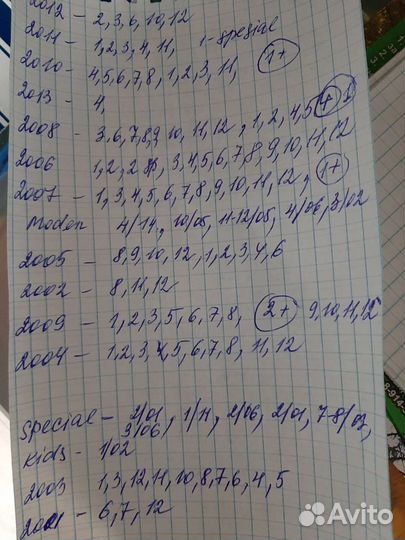 2012 - 2, 3, 6, 10, 12
2011 - 1, 2, 3, 4, 11, 1-spesial
2010 - 4, 5, 6, 7, 8, 1, 2, 3, 11, 1+
2013 - 4,
2008 - 3, 6, 7, 8, 9, 10, 11, 12, 1, 2, 4, 5
2006 1, 2, 3, 4, 5, 6, 7, 8, 9, 10, 11, 12
2007 - 1, 3, 4, 5, 6, 7, 8, 9, 10, 11, 12, 1+
Moden 4/14, 10/05, 11-12/05, 4/06, 3/02
2005 - 8, 9, 10, 12, 1, 2, 3, 4, 6
2002 - 8, 11, 12
2009 - 1, 2, 3, 5, 6, 7, 8, 2+ 9, 10, 11, 12
2004 - 1, 2, 3, 4, 5, 6, 7, 8, 11, 12
Special - 2/01, 1/11, 2/06, 2/01, 7-8/03,
3/06
Kids - 1/02
2003 1, 3, 12, 11, 10, 8, 7, 6, 4, 5
2001 - 6, 7, 12
Avito